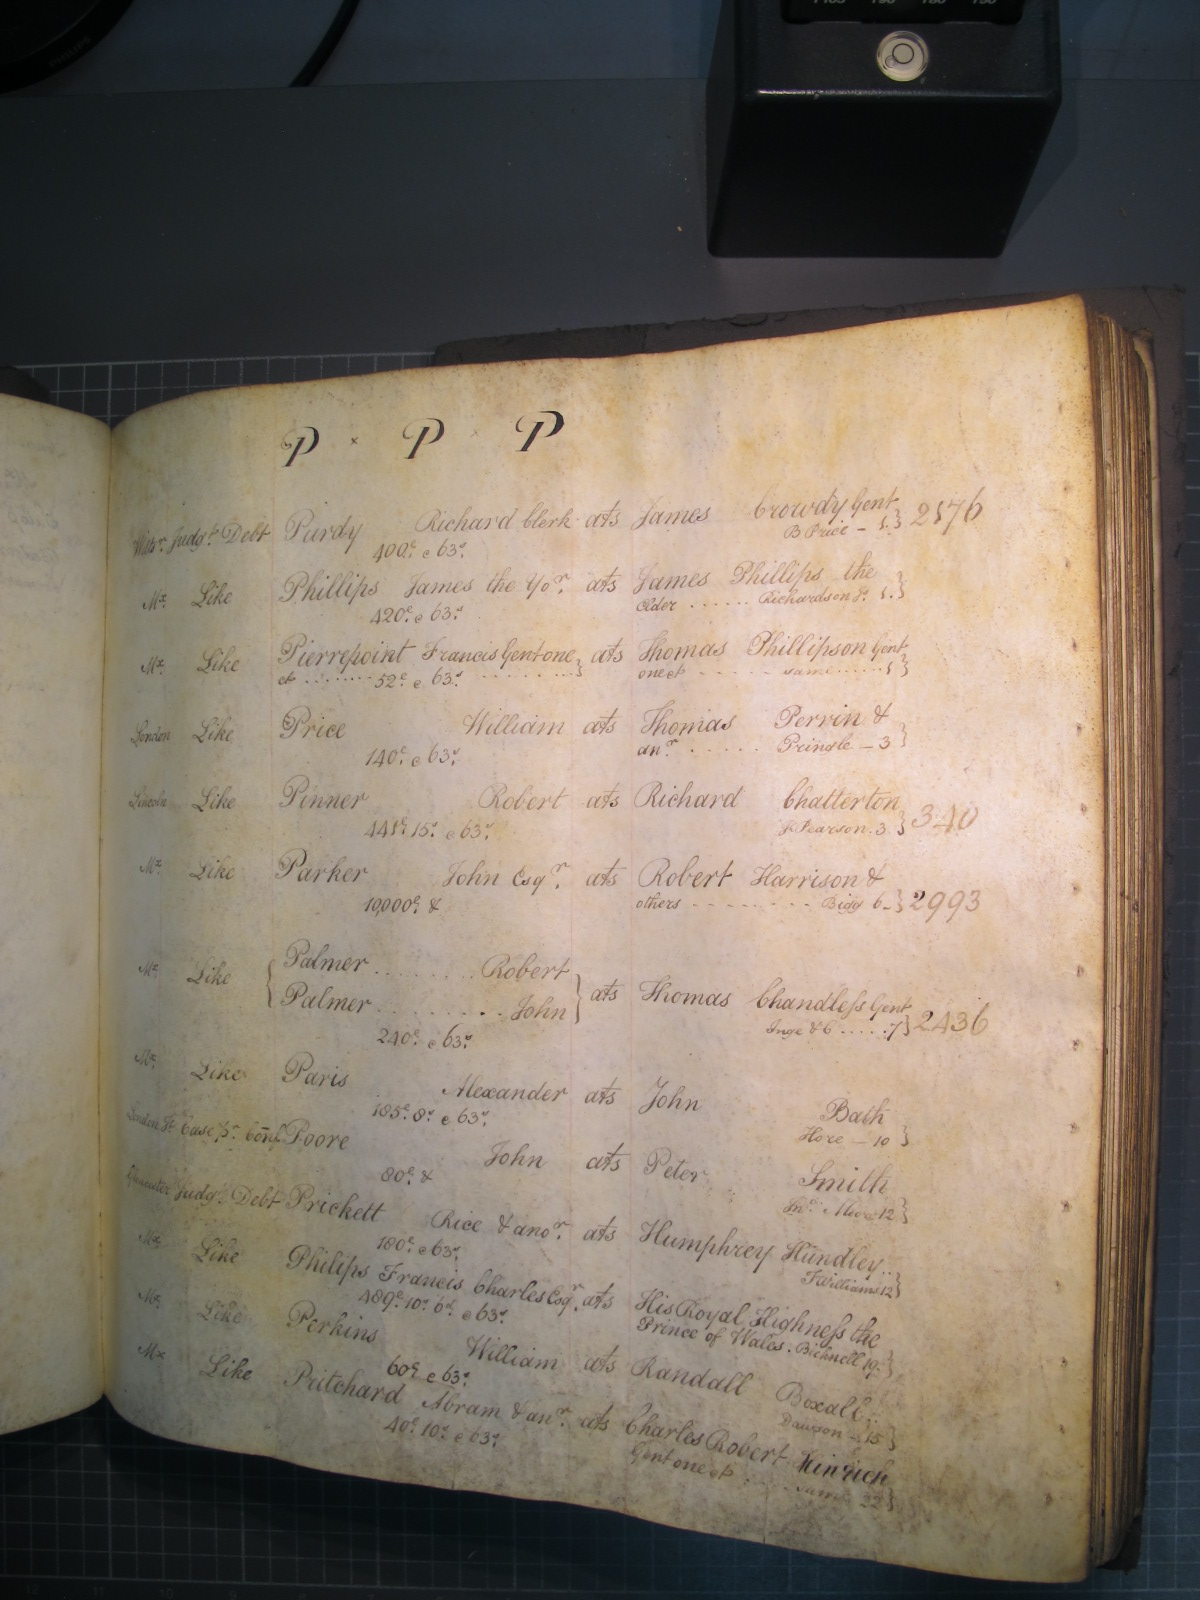 P × P × P
Wilts. Judgt. Debt Purdy Richard Clerk ats James Crowdy Gent 2176
400£ c 63s. B Price - 1.}
Mx. Like Phillips James the Yor. ats James Phillips the
420£ c 63s. Elder ...... Richardson Jr. 1.}
Mx. Like Pierrepoint Francis Gent one ats Thomas Phillipson Gent
&c ........ 52£ c 63s. ........ } one &c - - - - same ..... 1 }
London Like Price William ats Thomas Perrin &
140£ c 63s. anr. ..... Pringle - 3 }
Lincoln Like Pinner Robert ats Richard Chatterton 340
441£ 15s. c 63s. Pearson. 3 }
Mx. Like Parker John Esqr. ats Robert Harrison &
10,000£ & others - - - - - - - - 6 - } 2993
Mx. Like { Palmer ....... Robert } ats Thomas Chandless Gent
{ Palmer ........ John }
240£ c 63s. Inge & C ..... 7 } 2436
Mx. Like Paris Alexander ats John Bath
185£ 8s. c 63s. Hore - 10 }
London Case Poore John ats Peter Smith
80£ & 12 }
Judgt. Debt Prickett Rice & anor. ats Humphrey Hundley
180£ c 63s. F Williams 12 }
Mx. Like Philips Francis Charles Esqr. ats His Royal Highness the
489£ 10s. 6d. c 63s. Prince of Wales. Bicknell 19. }
Mx. Like Perkins William ats Randall Boxall
60£ c 63s. Dawson - 15 }
Mx. Like Pritchard Abram & anr. ats Charles Robert Hinrich
40£ 10s. c 63s. Gent one &c ..... same 22 }